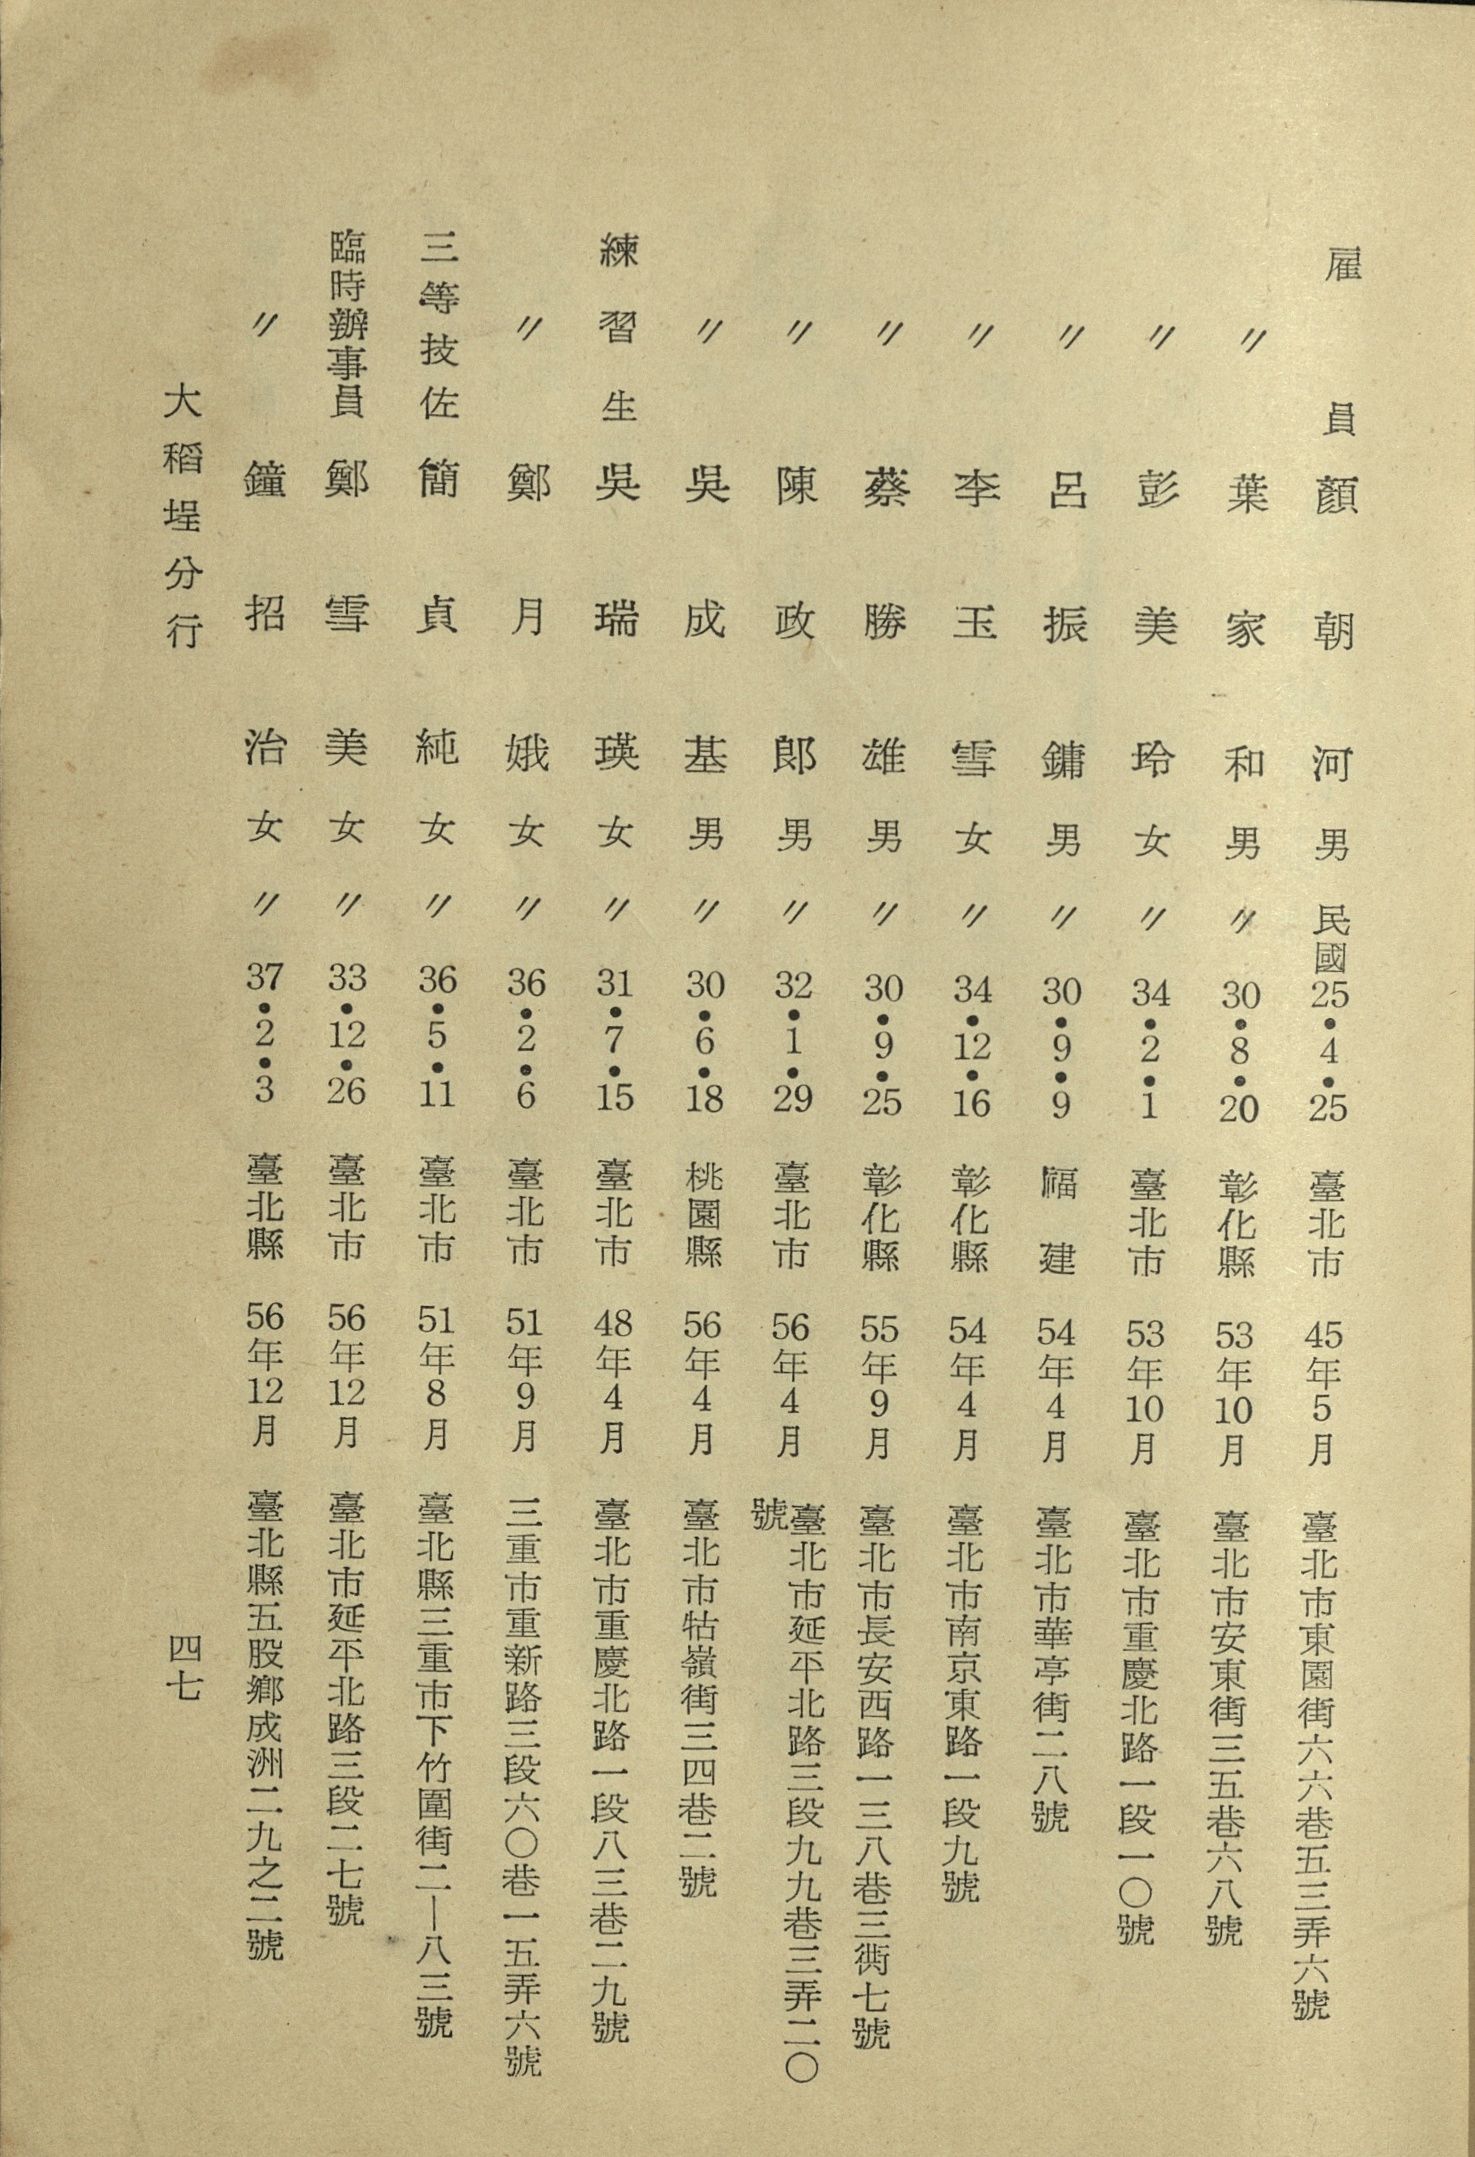 雇員 顏朝河 男 民國25•4•25 臺北市 45年5月 臺北市東園街六六巷五三弄六號
〃 葉家和 男 〃 30•8•20 彰化縣 53年10月 臺北市安東街三五巷六八號
〃 彭美玲 女 〃 34•2•1 臺北市 53年10月 臺北市重慶北路一段一〇號
〃 呂振鏞 男 〃 30•9•9 福建 54年4月 臺北市華亭街二八號
〃 李玉雪 女 〃 34•12•16 彰化縣 54年4月 臺北市南京東路一段九號
〃 蔡勝雄 男 〃 30•9•25 彰化縣 55年9月 臺北市長安西路一三八巷三衖七號
〃 陳政郎 男 〃 32•1•29 臺北市 56年4月 臺北市延平北路三段九九巷三弄二〇
號
〃 吳成基 男 〃 30•6•18 桃園縣 56年4月 臺北市牯嶺街三四巷二號
練習生 吳瑞瑛 女 〃 31•7•15 臺北市 48年4月 臺北市重慶北路一段八三巷二九號
〃 鄭月娥 女 〃 36•2•6 臺北市 51年9月 三重市重新路三段六〇巷一五弄六號
三等技佐 簡貞純 女 〃 36•5•11 臺北市 51年8月 臺北縣三重市下竹圍街二—八三號
臨時辦事員 鄭雪美 女 〃 33•12•26 臺北市 56年12月 臺北市延平北路三段二七號
〃 鐘招治 女 〃 37•2•3 臺北縣 56年12月 臺北縣五股鄉成洲二九之二號
大稻埕分行 四七